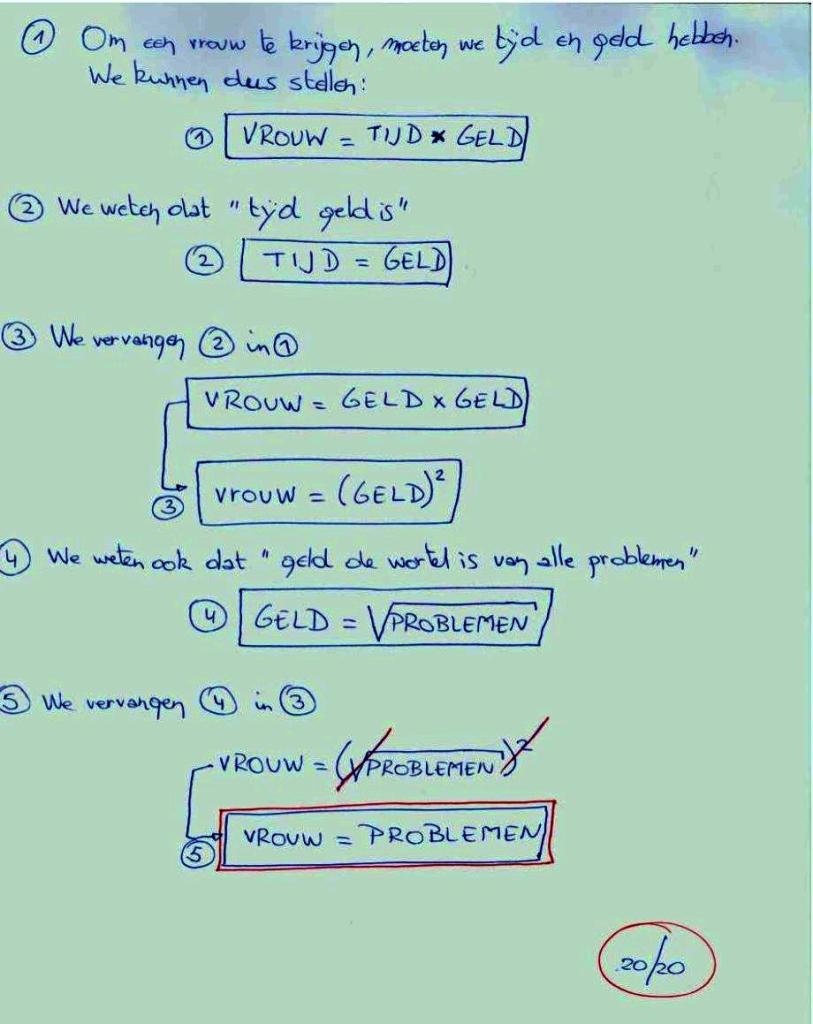 ① Om een vrouw te krijgen, moeten we tijd en geld hebben.
We kunnen dus stellen:
① VROUW = TIJD × GELD
② We weten dat "tijd geld is"
② TIJD = GELD
③ We vervangen ② in ①
VROUW = GELD × GELD
③ vrouw = (GELD)²
④ We weten ook dat "geld de wortel is van alle problemen"
④ GELD = √PROBLEMEN
⑤ We vervangen ④ in ③
VROUW = (√PROBLEMEN)²
⑤ VROUW = PROBLEMEN
20/20